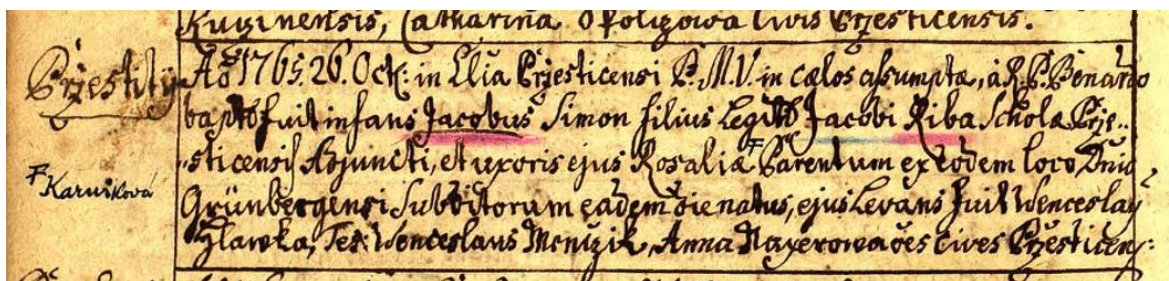 Kuzinensis, Catharina Opolizowa Civis Przesticensis.
Przestity Aō 1765. 26. Oct: in Ecclia Przesticensi B. M. V. in cælos assumptæ, à R. P. Benardo
bapt fuit infans Jacobus Simon filius Legitt Jacobi Riba Scholæ Prze..
sticensis Adjuncti, et uxoris ejus Rosaliæ Parentum ex eodem loco
Karniková
Grünbergensi Subditorum eadem die natus, ejus Levans fuit Wenceslaꝰ
Hlawka, Tes: Wenceslaus Menzik, Anna Mayerowa oēs cives Przesticen: